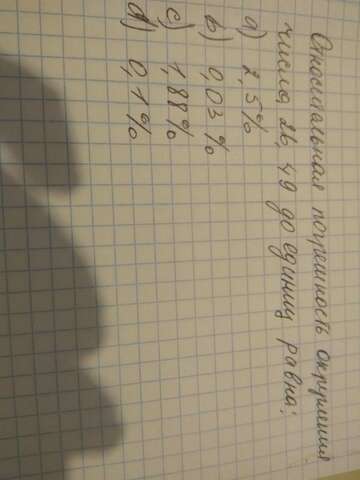 Относительная погрешность округления
числа 26,49 до единиц равна:
a) 2,5%
b) 0,03%
c) 1,88%
d) 0,1%